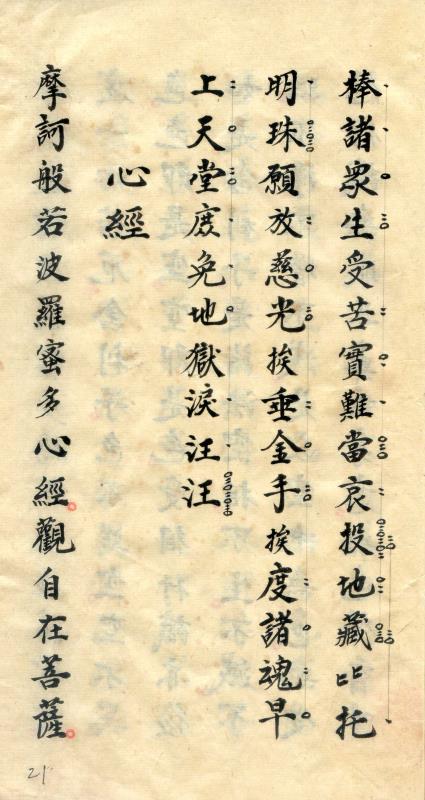 棒諸衆生受苦實難當哀投地藏比托
明珠願放慈光挨垂金手挨度諸魂早
上天堂度免地獄淚汪汪
心經
摩訶般若波羅蜜多心經觀自在菩薩
21